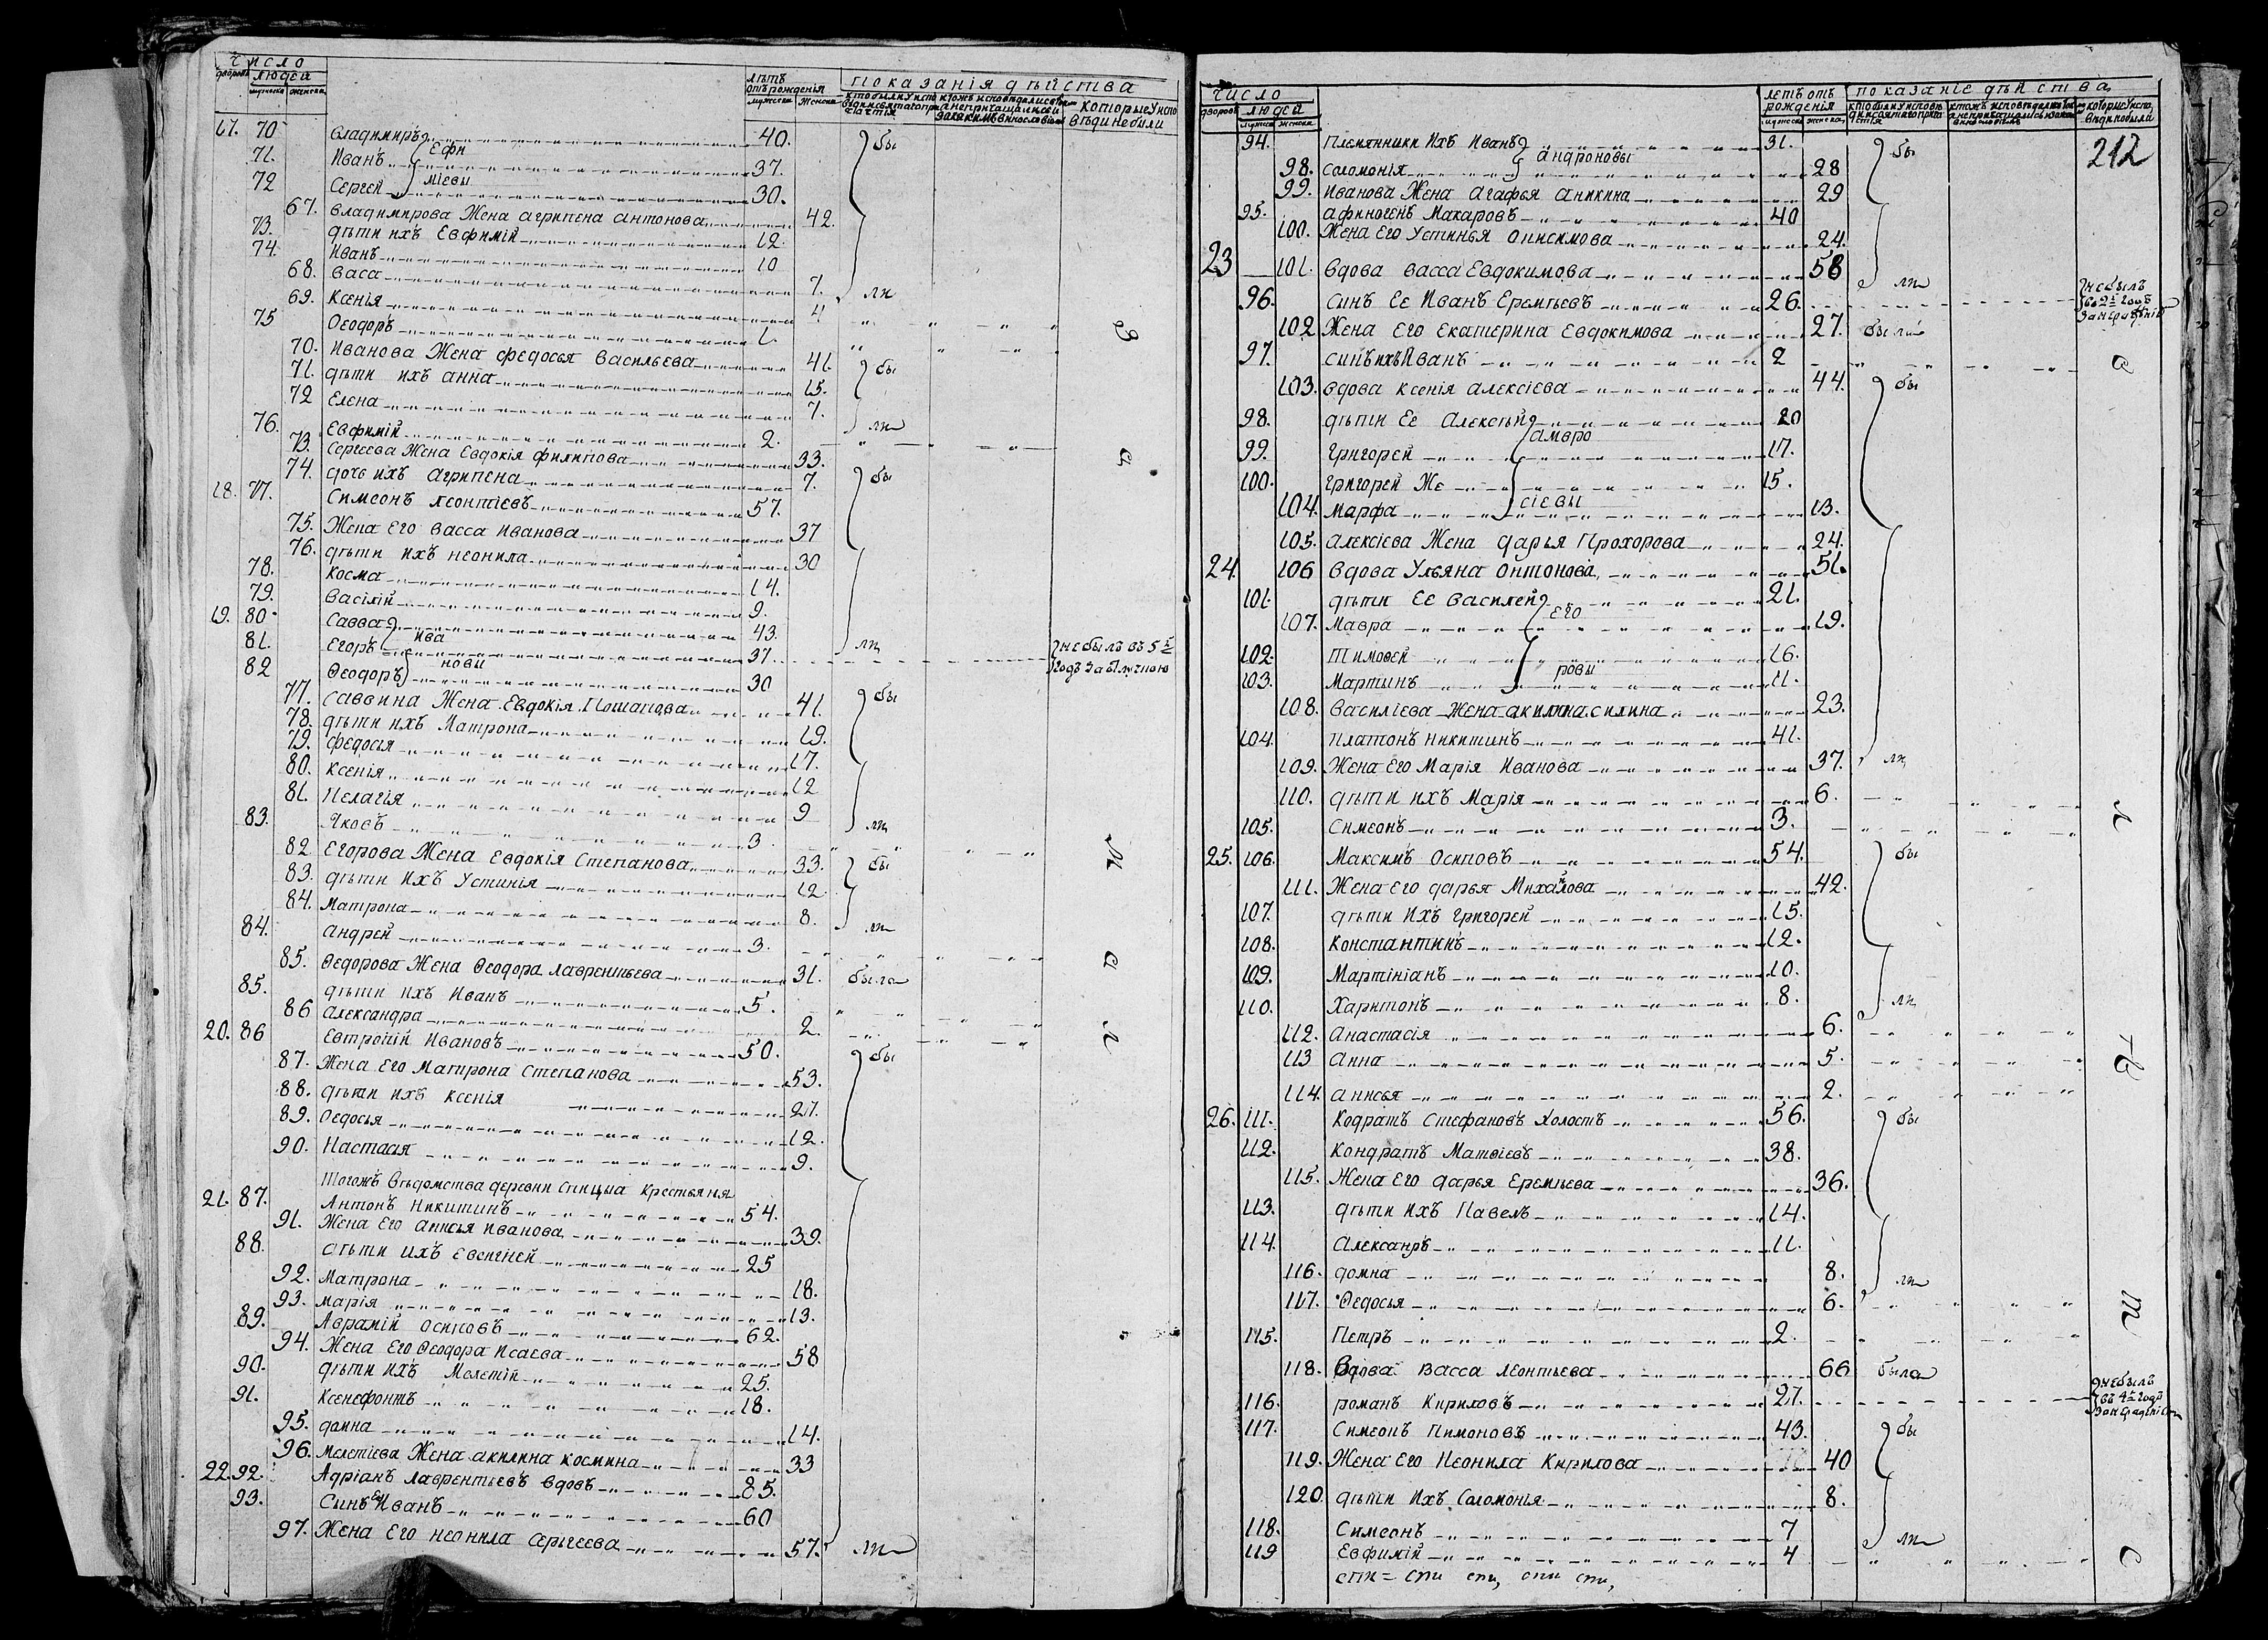 Число
дворовъ людей
мужеска женска
лѣтъ отъ рожденія
мужеска женска
показанія дѣйства
которые у исповѣди небыли
17. 70 Владимиръ 40. бы
71. Иванъ Ефи 37.
72 Сергей міевы 30.
67. Владимирова Жена Агрипена Антонова 42.
73. дѣти ихъ Евфимій 12.
74. Иванъ 10
68. Васа 7.
69. Ксенія 4 ли
75 Ѳеодоръ 1.
70. Иванова Жена Федосья Васильева 41. бы
71. дѣти ихъ Анна 15.
72 Елена 7. ли
76. Евфимій 2.
73. Сергеева Жена Евдокія Филипова 33.
74. дочь ихъ Агрипена 7. бы
18. 77. Симеонъ Леонтіевъ 57.
75. Жена Его Васса Иванова 37
76. дѣти ихъ Неонила 30
78. Косма 14.
79. Васілій 9.
19. 80 Савва 43.
81. Егоръ Ива 37. ли небылъ въ 5й
82 Ѳеодоръ новы 30 годъ за отлучкою
77. Саввина Жена Евдокія Потапова 41. бы
78. дѣти ихъ Матрона 19.
79. Федосія 17.
80. Ксенія 12
81. Пелагія 9
83. Яковъ 3. ли
82 Егорова Жена Евдокія Степанова 33. бы
83. дѣти Ихъ Устинія 12
84. Матрона 8.
84. Андрей 3. ли
85. Ѳедорова Жена Ѳеодора Лаврентьева 31. была
85. дѣти ихъ Иванъ 5.
86 Александра 2.
20. 86 Евтропій Ивановъ 50.
87. Жена Его Матрона Степанова 53. бы
88. дѣти ихъ Ксенія 27.
89. Ѳедосья 12.
90. Настасія 9.
Тогожъ Вѣдомства деревни Спицына Крестьяня
21. 87. Антонъ Никитинъ 54.
91. Жена Его Анисья Иванова 39.
88. дѣти ихъ Евсигней 25
92. Матрона 18.
93. Марія 13.
89. Аврамій Осиповъ 62.
94. Жена Его Ѳеодора Исаева 58
90. дѣти ихъ Мелетій 25.
91. Ксенефонтъ 18.
95. Домна 14.
96. Мелетіева Жена Акилина Космина 33
22. 92. Адріанъ Лаврентьевъ вдовъ 85.
93. Синъ Ево Иванъ 60
97. Жена Его Неонила Сергеева 57. ли
Число
дворовъ людей
мужеска женска
летъ отъ рожденія
мужеска женска
показаніе дѣйства
212
94. Племянники Ихъ Иванъ 31. бы
98. Соломонія Андроновы 28
99. Иванова Жена Агафья Аникина 29
95. Афиногенъ Макаровъ 40
100. Жена Его Устинья Онисимова 24.
23 101. Вдова Васса Евдокимова 58 ли
96. Синъ Ее Иванъ Еремѣевъ 26. небылъ
102 Жена Его Екатерина Евдокимова 27. была
97. Синъ ихъ Иванъ 2
103. Вдова Ксенія Алексіева 44. бы
98. дѣти Ее Алексѣй 20
99. Григорей Амвро 17.
100. Григорей Же 15.
104. Марфа сіевы 13.
105. Алексіева Жена Дарья Прохорова 24.
24. 106 Вдова Ульяна Онтонова 51.
101. дѣти Ее Василей 21.
107. Мавра Его 19.
102. Тимоѳей 16.
103. Мартынъ ровы 11.
108. Василіева Жена Акилина Силина 23.
104. Платонъ Никитинъ 41.
109. Жена Его Марія Иванова 37. ли
110. дѣти ихъ Марія 6.
105. Симеонъ 3.
25. 106. Максимъ Осиповъ 54. бы
111. Жена Его Дарья Михайлова 42.
107. дѣти Ихъ Григорей 15.
108. Константинъ 12.
109. Мартініанъ 10.
110. Харитонъ 8. ли
112. Анастасія 6.
113 Анна 5.
114. Анисья 2.
26. 111. Кодратъ Стефановъ Холостъ 56. бы
112. Кондратъ Матѳіевъ 38.
115. Жена Его Дарья Еремѣева 36.
113. дѣти Ихъ Павелъ 14.
114. Александръ 11.
116. Домна 8. ли
117. Ѳедосья 6.
115. Петръ 2.
118. Вдова Васса Леонтьева 66 была
116. Романъ Кириловъ 27. небылъ
117. Симеонъ Пимоновъ 43. бы
119. Жена Его Неонила Кирилова 40
120 дѣти Ихъ Соломонія 8.
118. Симеонъ 7 ли
119 Евфимій 4